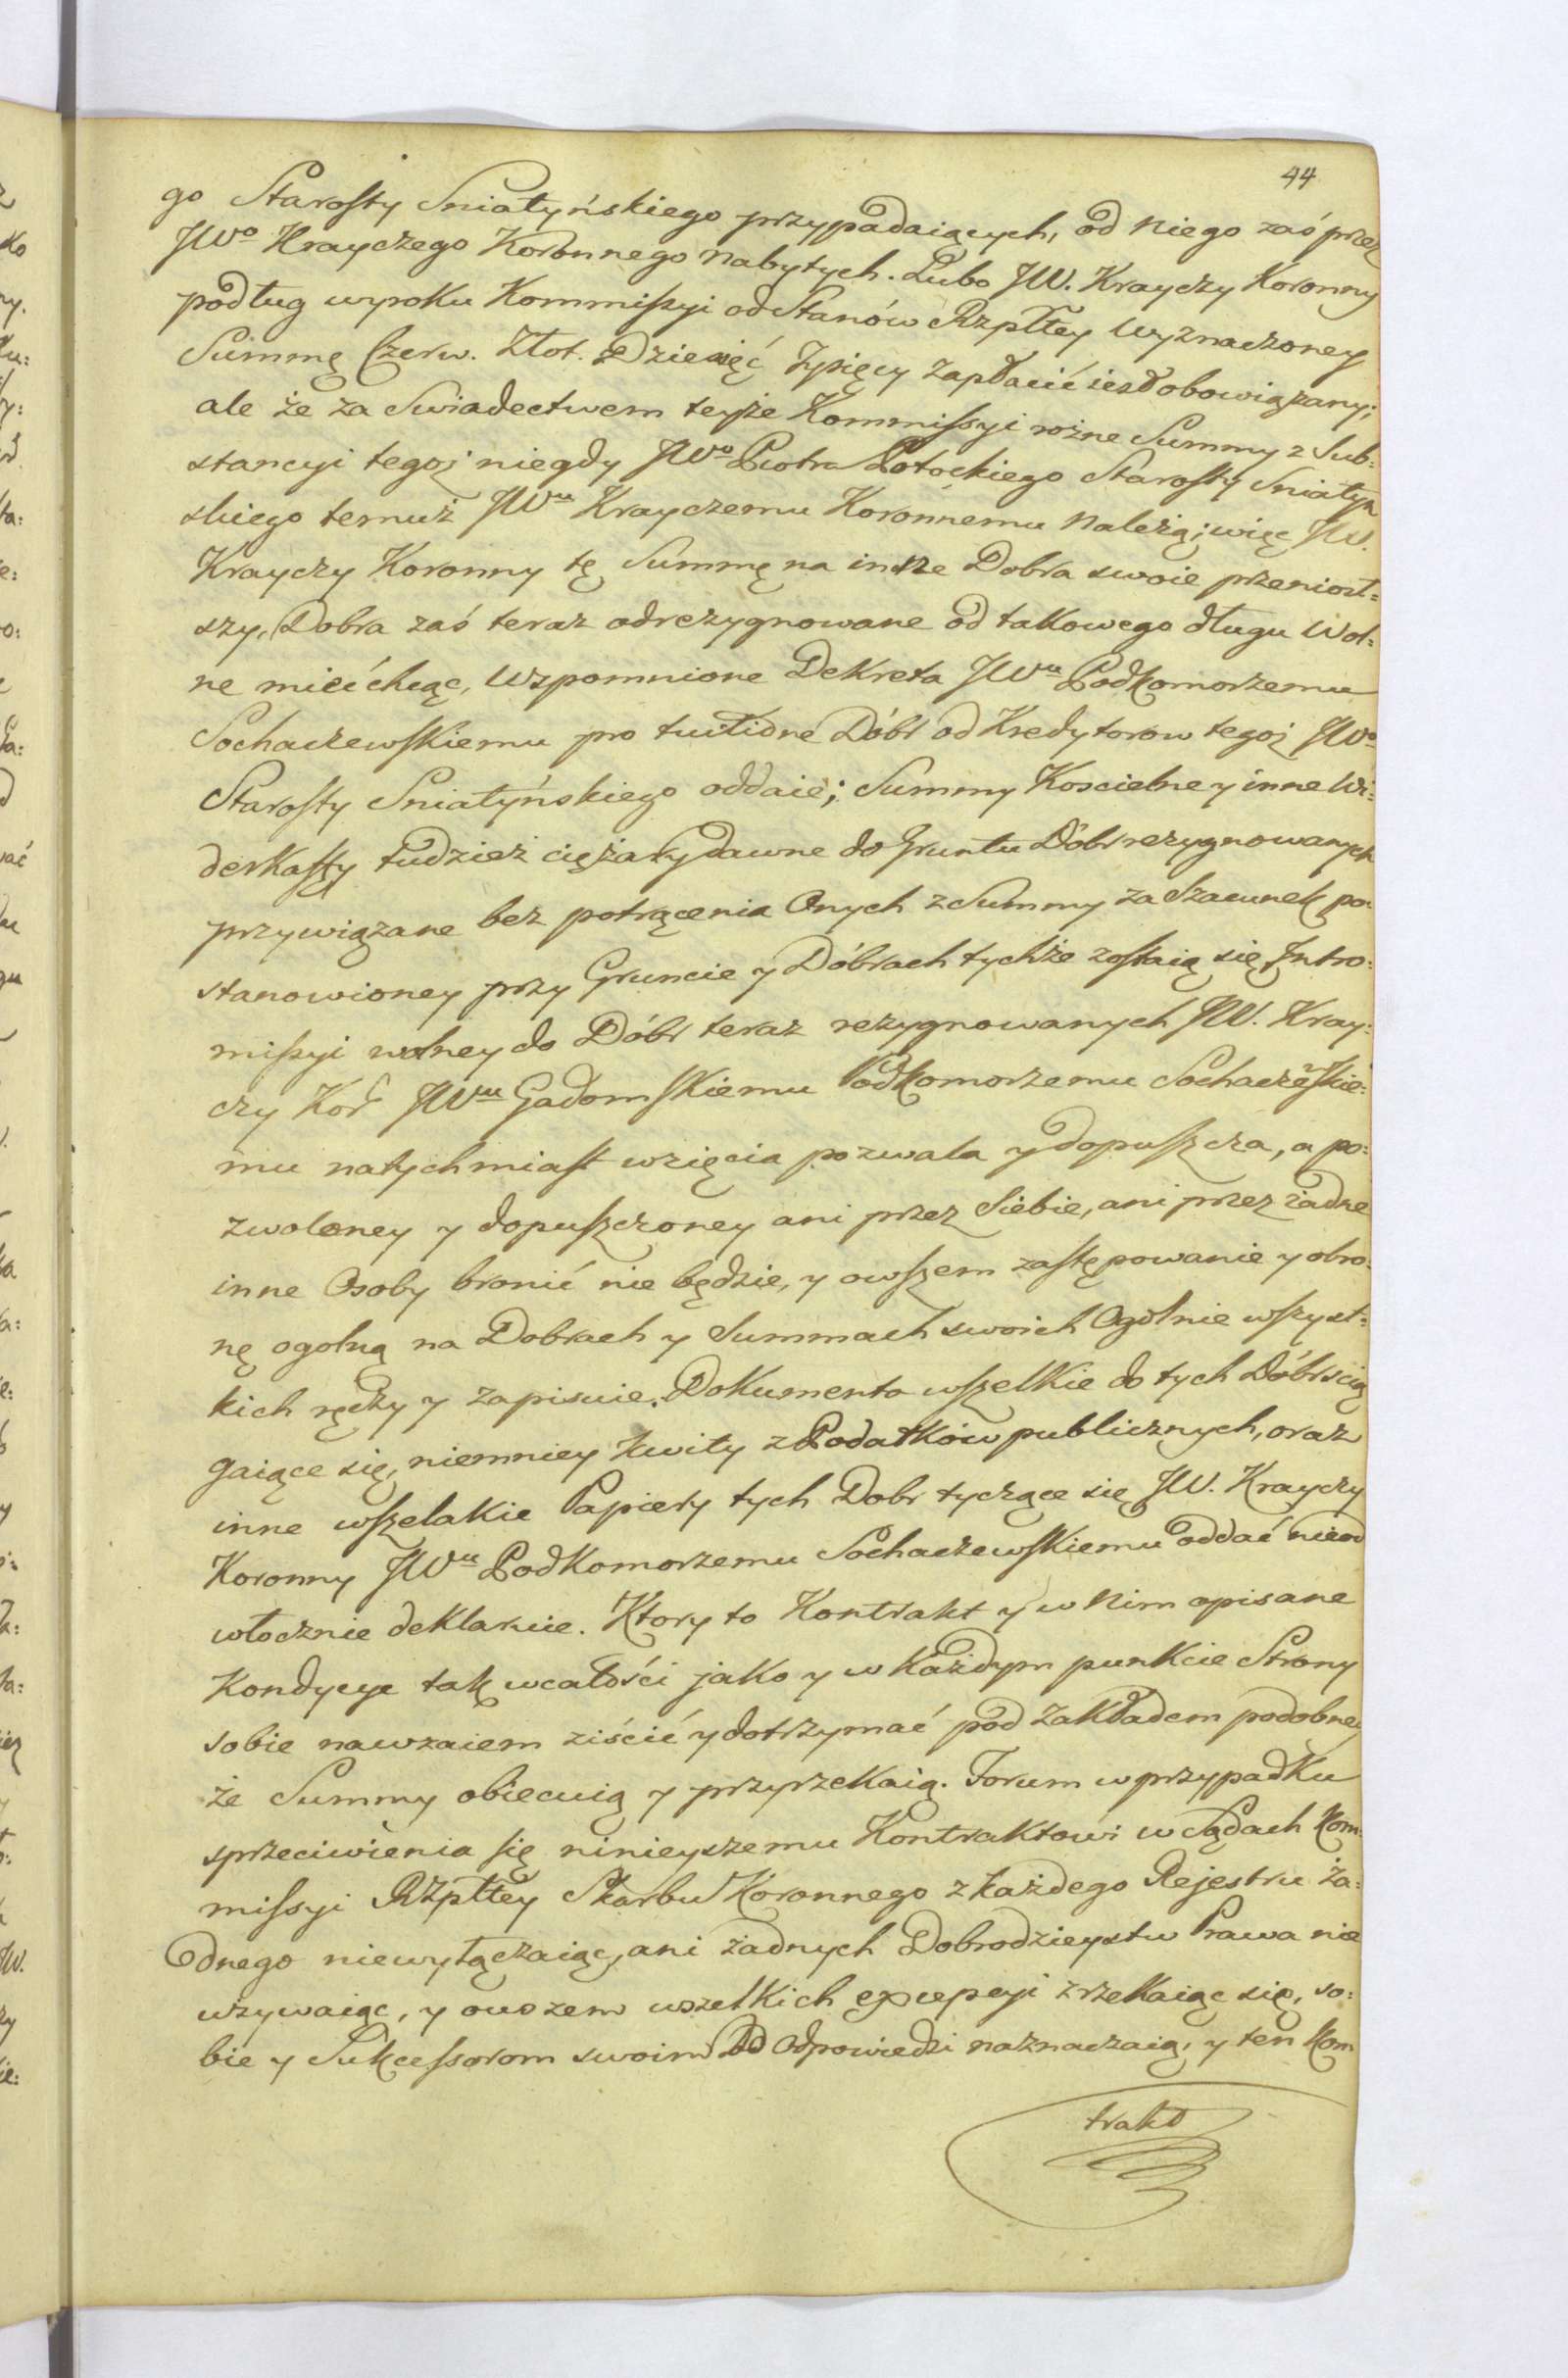 44
go Starosty Sniatyńskiego przypadaiących, od niego zaś przez
JWo Krayczego Koronnego nabytych. Lubo JW. Krayczy Koronny
podług wyroku Kommissyi od Stanów Rzpltey wyznaczoney
Summę Czerw. Złot. Dziewięć Tysięcy zapłacić iest obowiązany;
ale że za Swiadectwem teyże Kommissyi rożne Summy z Sub:
stancyi tegoż niegdy JWo Piotra Potockiego Starosty Sniatyń
skiego temuż JWu Krayczemu Koronnemu należą; więc JW.
Krayczy Koronny tę Summę na inne Dobra swoie przeniosł:
szy, Dobra zaś teraz odrezygnowane od takowego długu Wol:
ne mieć chcąc, Wzpomnione Dekreta JWu Podkomorzemu
Sochaczewskiemu pro tuitione Dóbr od Kredytorow tegoż JWo
Starosty Sniatyńskiego oddaie; Summy Koscielne y inne Wi:
derkassy tudzież ciężary dawne do Gruntu Dóbr rezygnowanych
przywiązane bez potrącenia Onych z Summy za Szacunek po
stanowioney przy Gruncie y Dóbrach tychże zostaią się Intro:
missyi wolney do Dóbr teraz rezygnowanych JW. Kray:
czy Kor JWu Gadomskiemu Podkomorzemu Sochaczewskie:
mu natychmiast wzięcia pozwala y dopuszcza, a po:
zwoloney y dopuszczoney ani przez Siebie, ani przez żadne
inne Osoby bronić nie będzie, y owszem zastępowanie y obro:
nę ogolną na Dobrach y Summach swoich Ogolnie wszyst:
kich ręczy y zapisuie. Dokumenta wszelkie do tych Dóbr ścią
gaiące się, niemniey Kwity z Podatków publicznych, oraz
inne wszelakie Papiery tych Dobr tyczące się JW. Krayczy
Koronny JWu Podkomorzemu Sochaczewskiemu oddać nieod
włocznie deklaruie. Ktory to Kontrakt y w nim opisane
Kondycye tak wcałości jako y w każdym punkcie Strony
sobie nawzaiem ziścić y dotrzymać pod zakładem podobney
że Summy obiecuią y przyrzekaią. Forum w przypadku
sprzeciwienia się ninieyszemu Kontraktowi w Sądach Kom:
missyi Rzpltey Skarbu Koronnego z każdego Rejestru ża:
dnego niewyłączaiąc, ani żadnych Dobrodzieystw Prawa nie
używaiąc, y owszem wszelkich excepcyi zrzekaiąc się, so:
bie y Sukcessorom swoim do Odpowiedzi naznaczaią, y ten Kon
trakt